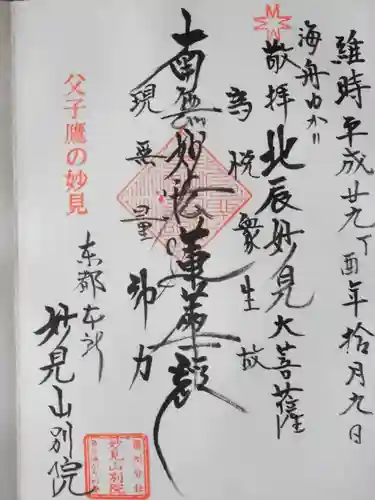 維時平成廿九丁酉年拾月九日
海舟ゆかり
敬拝 北辰妙見大菩薩
為悦衆生故
南無妙法蓮華経
現無量神力
父子鷹の妙見
東都本所
妙見山別院
妙見山別院